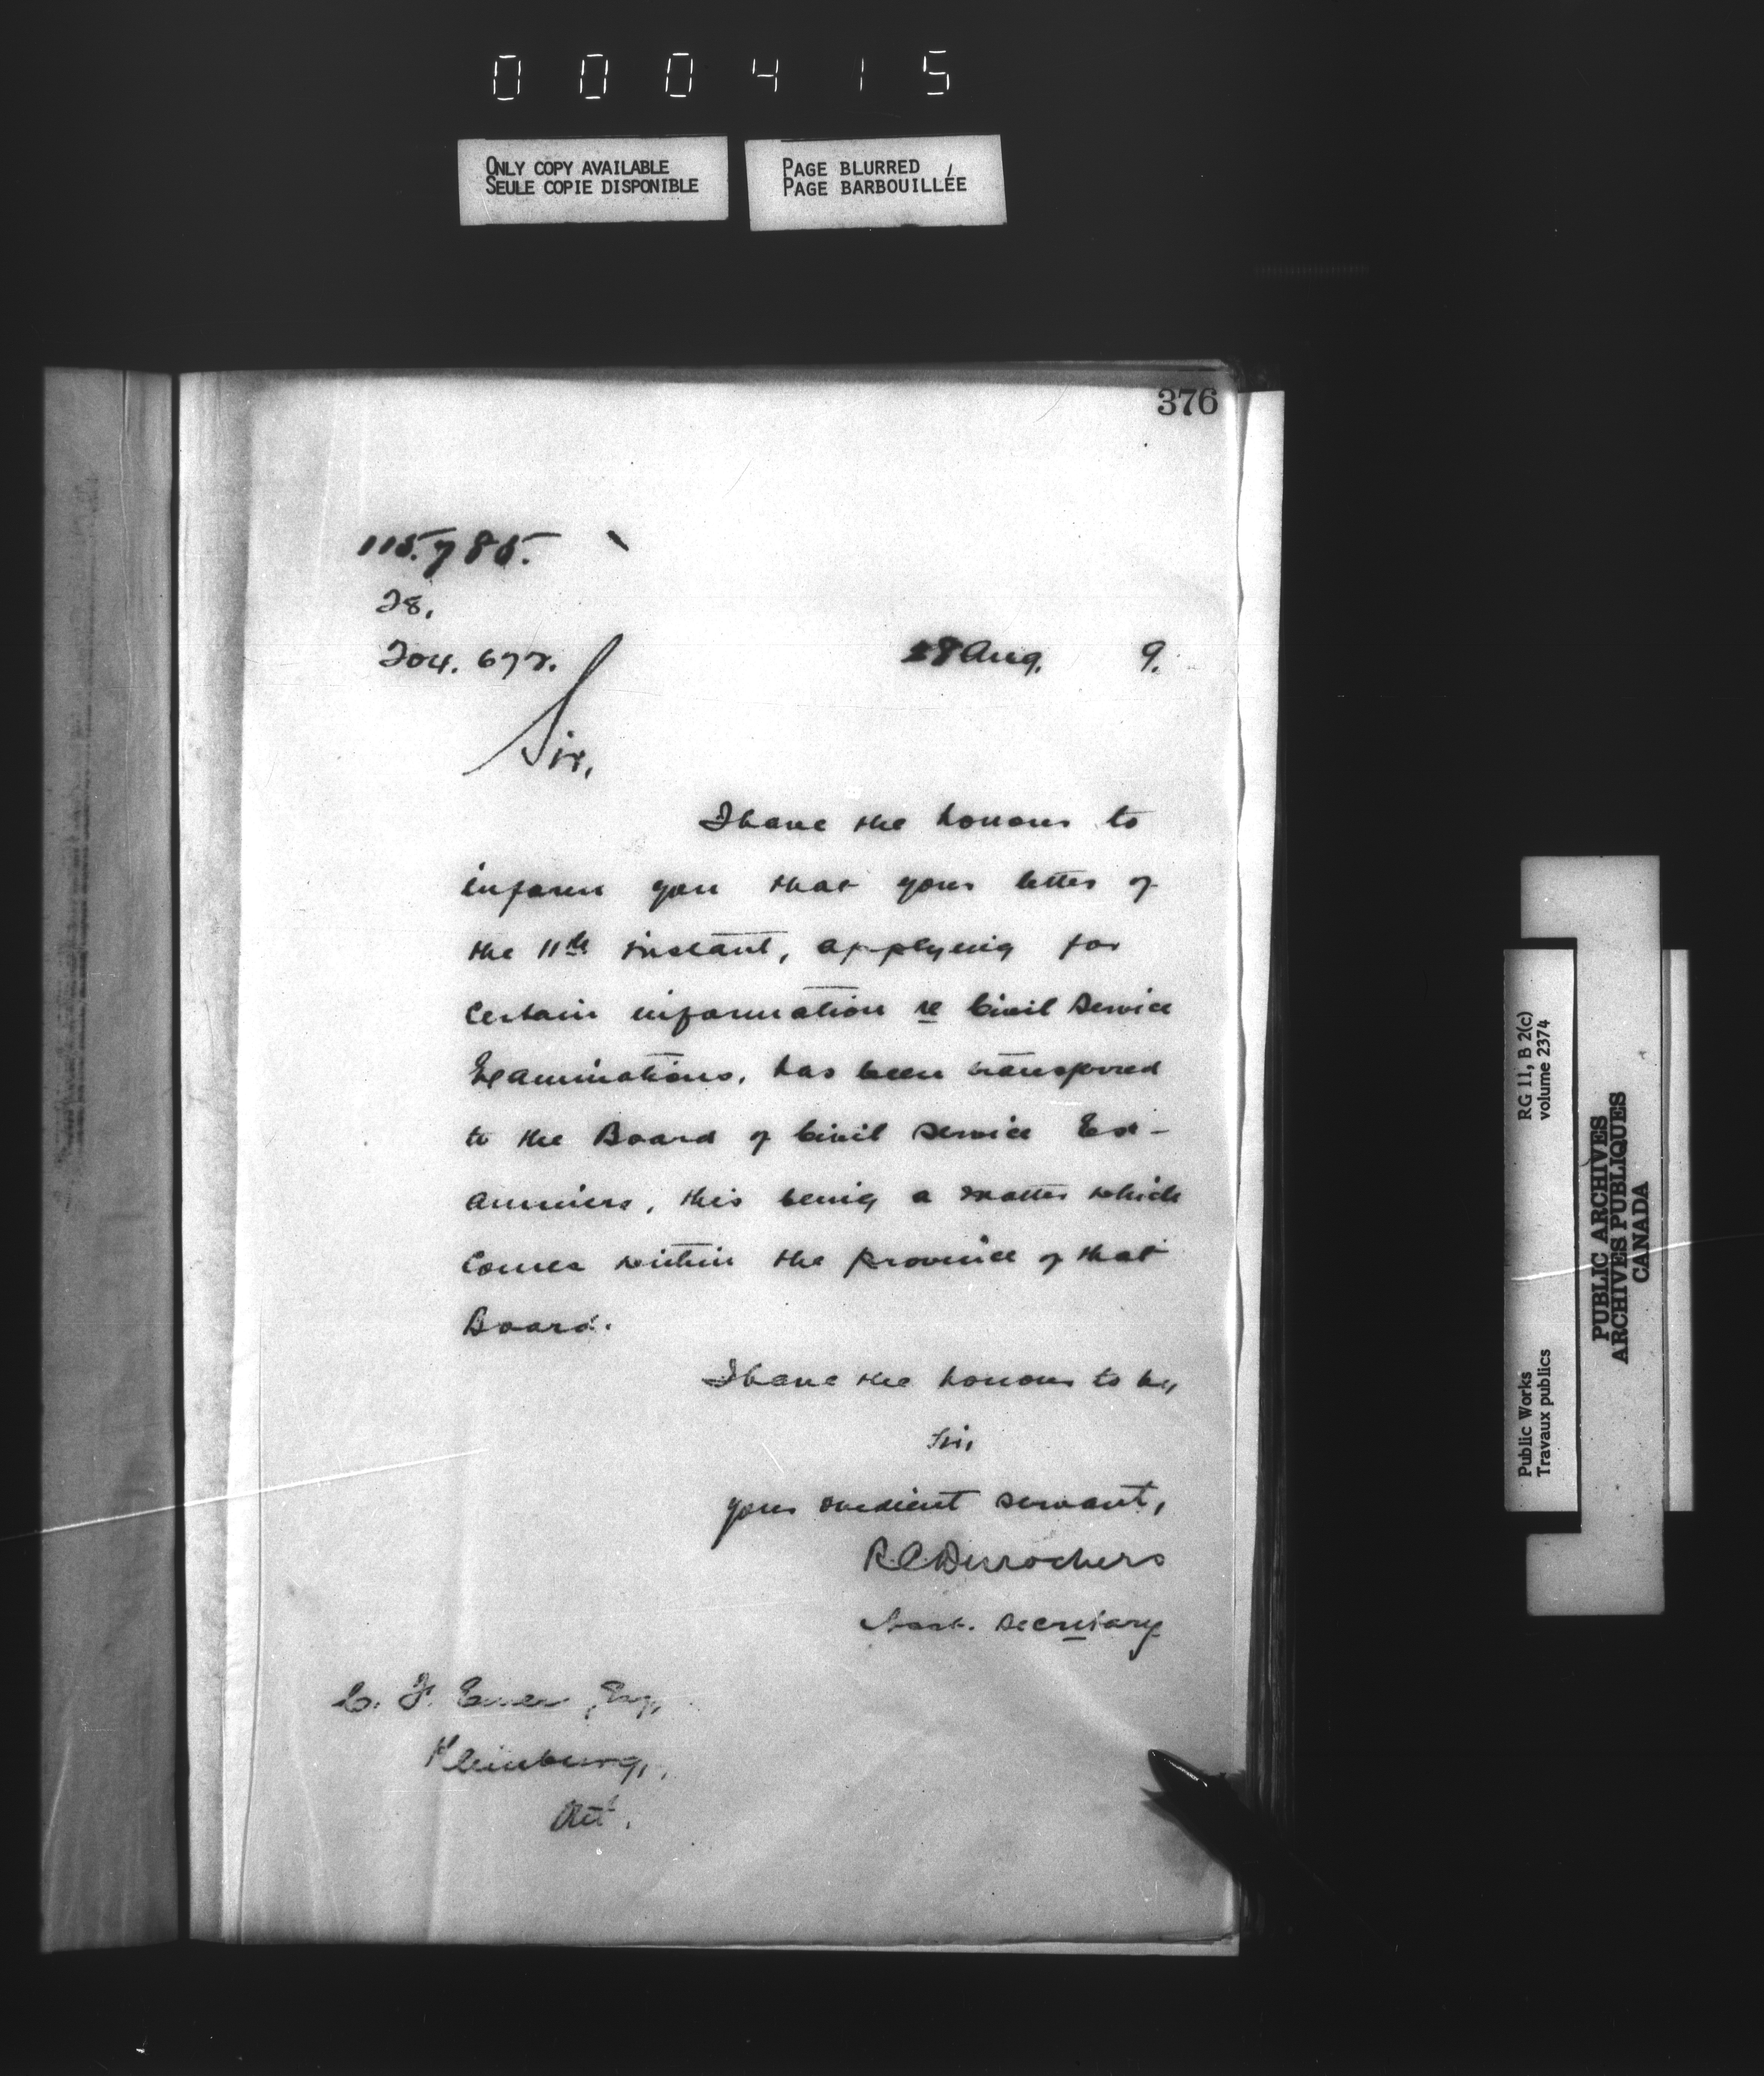 000415
ONLY COPY AVAILABLE
SEULE COPIE DISPONIBLE
PAGE BLURRED
PAGE BARBOUILLÉE
376
115.785.
28.
204.672.
28 Aug. 9.
Sir,
I have the honour to
inform you that your letter of
the 11th instant, applying for
certain information re Civil Service
Examinations, has been transferred
to the Board of Civil Service Ex-
aminers, this being a matter which
comes within the province of that
Board.
I have the honour to be,
Sir,
your obedient servant,
R.C. Desrochers
Asst. Secretary
C. F. Esq,
Kleinburg,
Ont.
Public Works
Travaux publics
RG 11, B 2(c)
volume 2374
PUBLIC ARCHIVES
ARCHIVES PUBLIQUES
CANADA